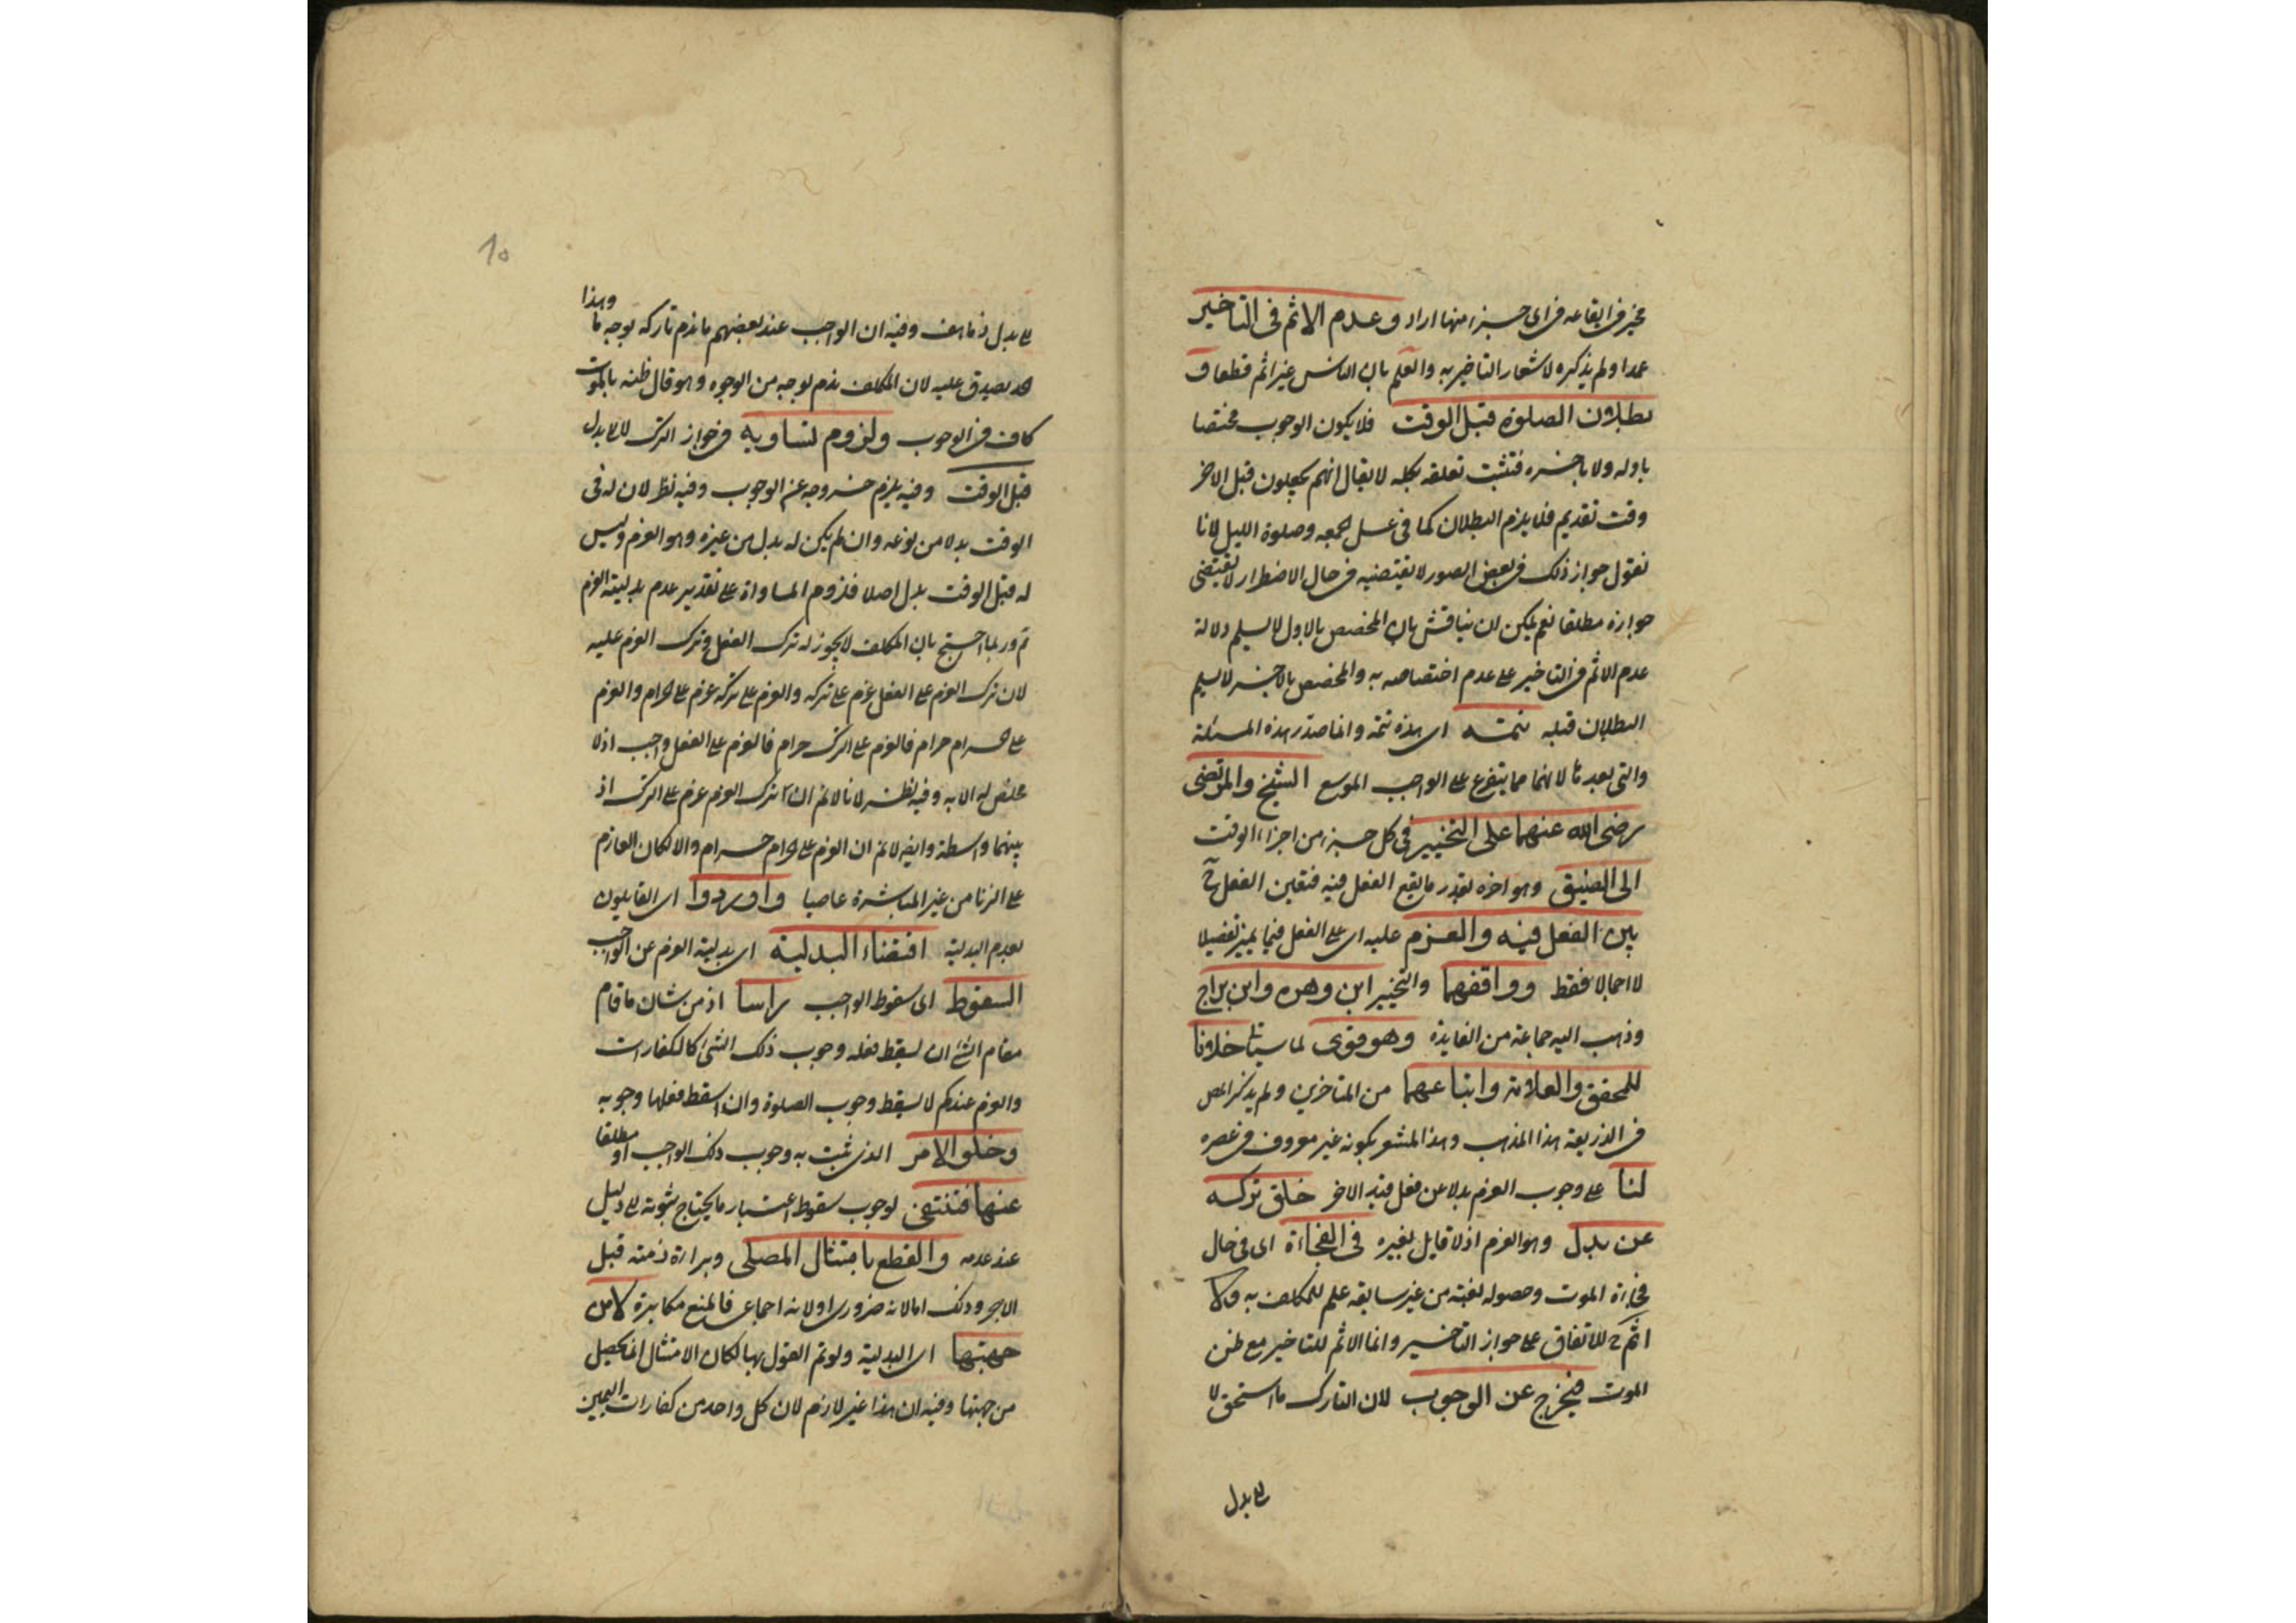 مخير في ايقاعه في اى جزء منها اراد و عدم الاثم فى التاخير
عمدا ولم يذكره لاشعار التاخير به والعلم بان الناس غير اثم قطعا و
بطلان الصلوة قبل الوقت فلا يكون الوجوب مختصا
باوله ولا باخره فثبت تعلقه بكله لا يقال انهم يجعلون قبل الاخر
وقت تقديم فلا يلزم البطلان كما فى غسل الجمعه وصلوة الليل لانا
نقول جواز ذلك في بعض الصور لا يقتضيه في حال الاضطرار لا يقتضى
جوازه مطلقا نعم يمكن ان يناقش بان المخصص بالاول لا يسلم دلالة
عدم الاثم في التاخير على عدم اختصاصه به والمخصص بالاخير لا يسلم
البطلان قبله تتمة اى هذه تتمة وانما صدر هذه المسئلة
والتى بعدها لانهما مما يتفرع على الواجب الموسع الشيخ والمرتضى
رضى الله عنهما على التخيير فى كل جزء من اجزاء الوقت
الى الضيق وهو اخره بقدر ما يقع الفعل فيه فتعين الفعل ح
بين الفعل فيه والعزم عليه اى على الفعل فيما يميز تفصيلا
لا اجمالا فقط ووافقهما والتخيير ابن زهره وابن براج
وذهب اليه جماعة من العامة وهو قوى لما سيأتى خلافا
للمحقق والعلامة واتباعهما من المتاخرين ولم يذكر المص
في الذريعة هذا المذهب وهذا المشعر بكونه غير معروف في عصره
لنا على وجوب العزم بدلا عن فعل قبل الاخر خلو تركه
عن بدل وهو العزم اذ لا قايل بغيره فى الفجاءة اى فى حال
فجاءة الموت وحصوله بغتة من غير سابقه علم للمكلف به ولا
اثم ح للاتفاق على جواز التاخير وانما الاثم للتاخير مع ظن
الموت فيخرج عن الوجوب لان التارك ما استحق لا
لا بدل
10
لا بدل ذما وفيه ان الواجب عند بعضهم ما يذم تاركه بوجه ما وهذا
قد يصدق عليه لان المكلف يذم بوجه من الوجوه وهو قال ظنه بالموت
كاف في الوجوب ولزوم تساويه في جواز الترك لا بدل
قبل الوقت وفيه يلزم خروجه عن الوجوب وفيه نظر لان له فى
الوقت بدلا من نوعه وان لم يكن له بدل من غيره وهو العزم وليس
له قبل الوقت بدل اصلا فلزوم المساواة على تقدير عدم بدلية العزم
ثم وربما احتج بان المكلف لا يجوز له ترك الفعل وترك العزم عليه
لان ترك العزم على الفعل عزم على تركه والعزم على تركه عزم على الحرام والعزم
على الحرام حرام فالعزم على الترك حرام فالعزم على الفعل واجب اذ لا
مخلص له الا به وفيه نظر لانا لا نم ان ترك العزم عزم على الترك اذ
بينهما واسطة وايضا لا نم ان العزم على الحرام حرام والا لكان العازم
على الزنا من غير المباشرة عاصيا واوردوا اى القايلون
بعدم البدلية اقتضاء البدلية اى بدلية العزم عن الواجب
السقوط اى سقوط الواجب راسا اذ من شان ما قام
مقام الشئ ان يسقط فعله وجوب ذلك الشئ كالكفارات
والعزم عندكم لا يسقط وجوب الصلوة وان اسقط فعلها وجوبه
وخلو الامر الذى ثبت به وجوب ذلك الواجب او مطلقا
عنها فتنتفى لوجوب سقوط اعتبار ما يحتاج ثبوته الى دليل
عند عدمه والقطع بامتثال المصلى وبراءة ذمته قبل
الاخر وذلك اما لانه ضرورى او لانه اجماعى فالمنع مكابرة لا من
جهتها اى البدلية ولو تم القول بها لكان الامتثال انما يحصل
من جهتها وفيه ان هذا غير لازم لان كل واحد من كفارات اليمين